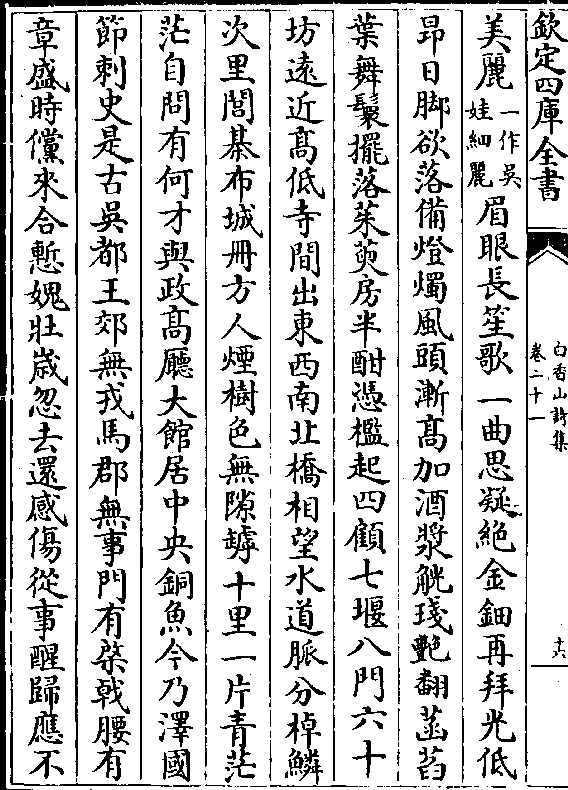 欽定四庫全書
白香山詩集
卷二十一
十六
美麗一作吳娃細麗眉眼長笙歌一曲思凝絶金鈿再拜光低
昻日脚欲落備燈燭風頭漸髙加酒漿觥琖艶翻菡萏
葉舞鬟擺落茱萸房半酣憑檻起四顧七堰八門六十
坊遠近髙低寺間出東西南北橋相望水道脈分棹鱗
次里閭棊布城冊方人煙樹色無隙罅十里一片青茫
茫自問有何才與政髙廳大館居中央銅魚今乃澤國
節刺史是古吳都王郊無戎馬郡無事門有棨戟腰有
章盛時儻來合慙媿壯嵗忽去還感傷從事醒歸應不